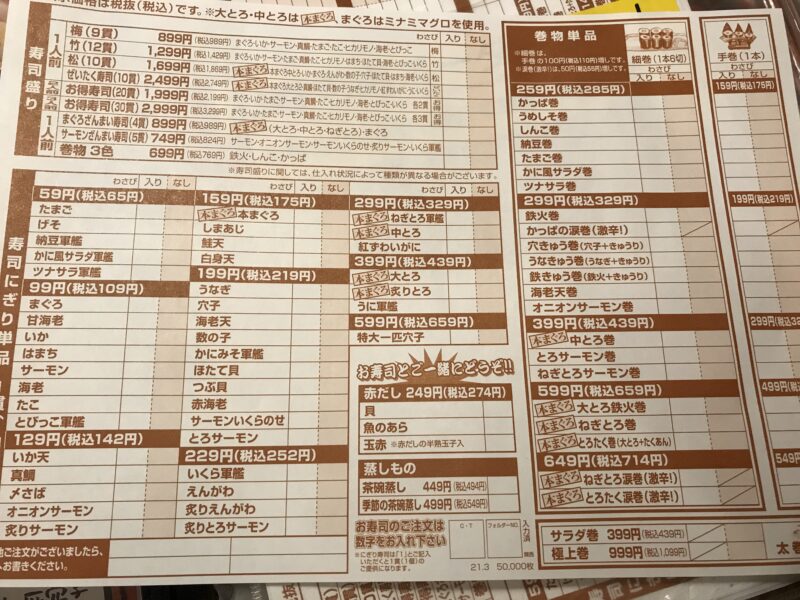 価格は税抜(税込)です。※大とろ・中とろは本まぐろ、まぐろはミナミマグロを使用。
寿司盛り
1人前
わさび 入り なし
梅(9貫) 899円(税込989円)
竹(12貫) 1,299円(税込1,429円)
松(10貫) 1,699円(税込1,869円)
ぜいたく寿司(10貫) 2,499円(税込2,749円)
お得寿司(20貫) 1,999円(税込2,199円)
お得寿司(30貫) 2,999円(税込3,299円)
1人前
まぐろざんまい寿司(4貫) 899円(税込989円) 本まぐろ(大とろ・中とろ・ねぎとろ)・まぐろ
サーモンざんまい寿司(5貫) 749円(税込824円) サーモン・オニオンサーモン・サーモンいくらのせ・炙りサーモン・いくら軍艦
巻物 3色 699円(税込769円) 鉄火・しんこ・かっぱ
※寿司盛りに関しては、仕入れ状況によって種類が異なる場合がございます。
寿司にぎり単品
わさび 入り なし
59円(税込65円)
たまご
げそ
納豆軍艦
かに風サラダ軍艦
ツナサラダ軍艦
99円(税込109円)
まぐろ
甘海老
いか
はまち
サーモン
海老
たこ
とびっこ軍艦
129円(税込142円)
いか天
真鯛
〆さば
オニオンサーモン
炙りサーモン
わさび 入り なし
159円(税込175円)
本まぐろ 本まぐろ
しまあじ
鮭天
白身天
199円(税込219円)
うなぎ
穴子
海老天
数の子
かにみそ軍艦
ほたて貝
つぶ貝
赤海老
サーモンいくらのせ
とろサーモン
229円(税込252円)
いくら軍艦
えんがわ
炙りえんがわ
炙りとろサーモン
わさび 入り なし
299円(税込329円)
本まぐろ ねぎとろ軍艦
本まぐろ 中とろ
紅ずわいがに
399円(税込439円)
本まぐろ 大とろ
本まぐろ 炙りとろ
うに軍艦
599円(税込659円)
特大一匹穴子
お寿司とご一緒にどうぞ!!
赤だし 249円(税込274円)
貝
魚のあら
玉赤 ※赤だしの半熟玉子入
蒸しもの
茶碗蒸し 449円(税込494円)
季節の茶碗蒸し 499円(税込549円)
お寿司のご注文は
数字をお入れ下さい
※にぎり寿司は「1」とご記入
いただくと1貫(1個)の
ご提供になります。
C・T
フォルダーNO.
入力済
21.3 50,000枚
他ご注文がございましたら、
へお書きください。
巻物単品
※細巻は、
手巻の100円(税込110円)増しです。
※涙巻(激辛)は、50円(税込55円)増しです。
細巻(1本6切)
わさび
入り なし
手巻(1本)
わさび
入り なし
259円(税込285円)
159円(税込175円)
かっぱ巻
うめしそ巻
しんこ巻
納豆巻
たまご巻
かに風サラダ巻
ツナサラダ巻
299円(税込329円)
199円(税込219円)
鉄火巻
かっぱの涙巻(激辛!)
穴きゅう巻(穴子+きゅうり)
うなきゅう巻(うなぎ+きゅうり)
鉄きゅう巻(鉄火+きゅうり)
海老天巻
オニオンサーモン巻
399円(税込439円)
299円(税込32
本まぐろ 中とろ巻
とろサーモン巻
ねぎとろサーモン巻
599円(税込659円)
499円(税
本まぐろ 大とろ鉄火巻
本まぐろ ねぎとろ巻
本まぐろ とろたく巻(大とろ+たくあん)
649円(税込714円)
549円
本まぐろ ねぎとろ涙巻(激辛!)
本まぐろ とろたく涙巻(激辛!)
サラダ巻 399円(税込439円)
極上巻 999円(税込1,099円)
太巻